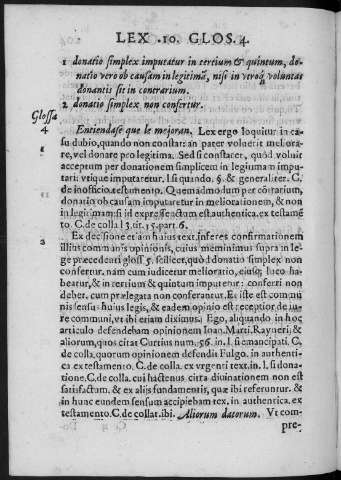 LEX .10. GLOS. 4.
1 donatio simplex imputatur in tertium & quintum, do-
natio vero ob causam in legitimã, nisi in vtroq; voluntas
donantis sit in contrarium.
2 donatio simplex non confertur.
Glossa
4
Entiendase que le mejoran. Lex ergo loquitur in ca-
su dubio, quando non constaret an pater voluerit meliora-
re, vel donare pro legitima. Sed si constaret, quòd voluit
acceptum per donationem simplicem in legitimam impu-
tari: vtique imputaretur. l. si quando. §. & generaliter. C.
de inofficio. testamento. Quemadmodum per cõtrarium,
donatio ob causam imputaretur in meliorationem, & non
in legitimam: si id expressè actum est. authentica. ex testamẽ
to. C. de colla. l. 3. tit. 15. part. 6.
2
Ex decisione etiam huius text. inferes confirmationem
illius communis opinionis, cuius meminimus supra in le-
ge præcedenti gloss. 5. scilicet, quòd donatio simplex non
confertur. nam cum iudicetur melioratio, eiusq; loco ha-
beatur, & in tertium & quintum imputetur: conferri non
debet, cum prælegata non conferantur. Et iste est commu
nis sensus huius legis, & eadem opinio est receptior de iu-
re communi, vt ibi etiam diximus. Ego, aliquando in hoc
articulo defendebam opinionem Ioan. Marti. Rayneri, &
aliorum, quos citat Curtius num. 56. in. l. si emancipati. C.
de colla. quorum opinionem defendit Fulgo. in authenti-
ca ex testamento. C. de colla. ex vrgenti text. in. l. si dona-
tione. C. de colla. cui hactenus citra diuinationem non est
satisfactum, & ex alijs fundamentis, quæ ibi referuntur. &
in hunc eundem sensum accipiebam tex. in authentica. ex
testamento. C. de collat. ibi. Aliorum datorum. Vt com-
pre-